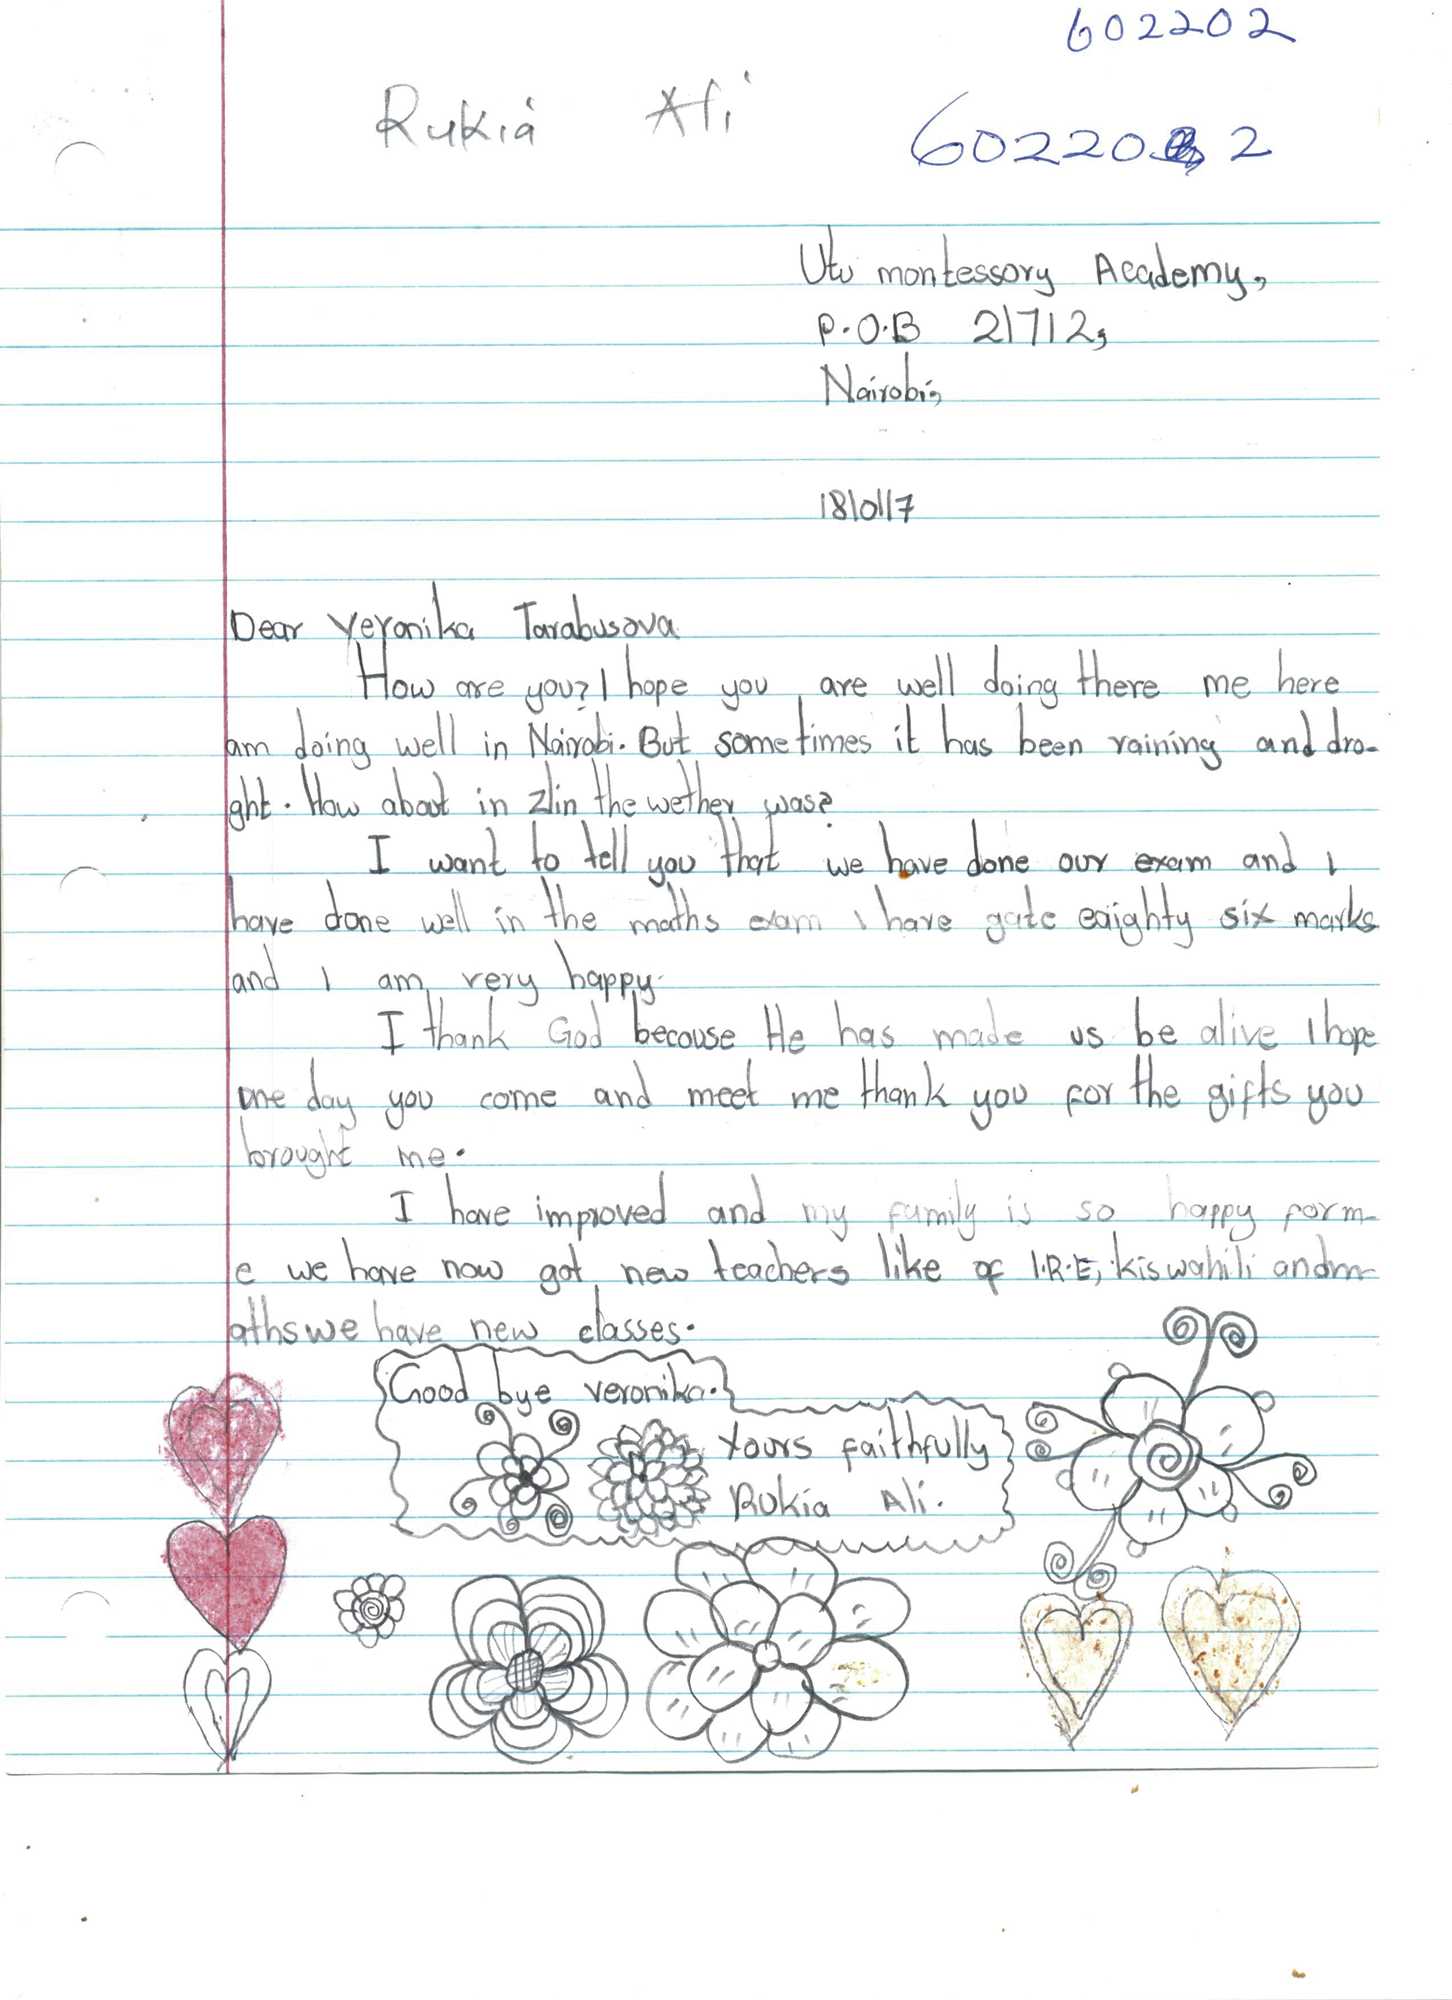 602202
Rukia Ali
602202
Utu montessory Academy,
P.O.B 21712,
Nairobi,
18/01/7
Dear Veronika Tarabusova
How are you? I hope you are well doing there me here
am doing well in Nairobi. But sometimes it has been raining and dro-
ght. How about in Zlin the wether was?
I want to tell you that we have done our exam and I
have done well in the maths exam I have gate eaighty six marks
and I am very happy.
I thank God becouse He has made us be alive I hope
one day you come and meet me thank you for the gifts you
brought me.
I have improved and my family is so happy for m-
e we have now got new teachers like of I.R.E, kiswahili and m-
aths we have new classes.
Good bye veronika.
Yours faithfully
Rukia Ali.